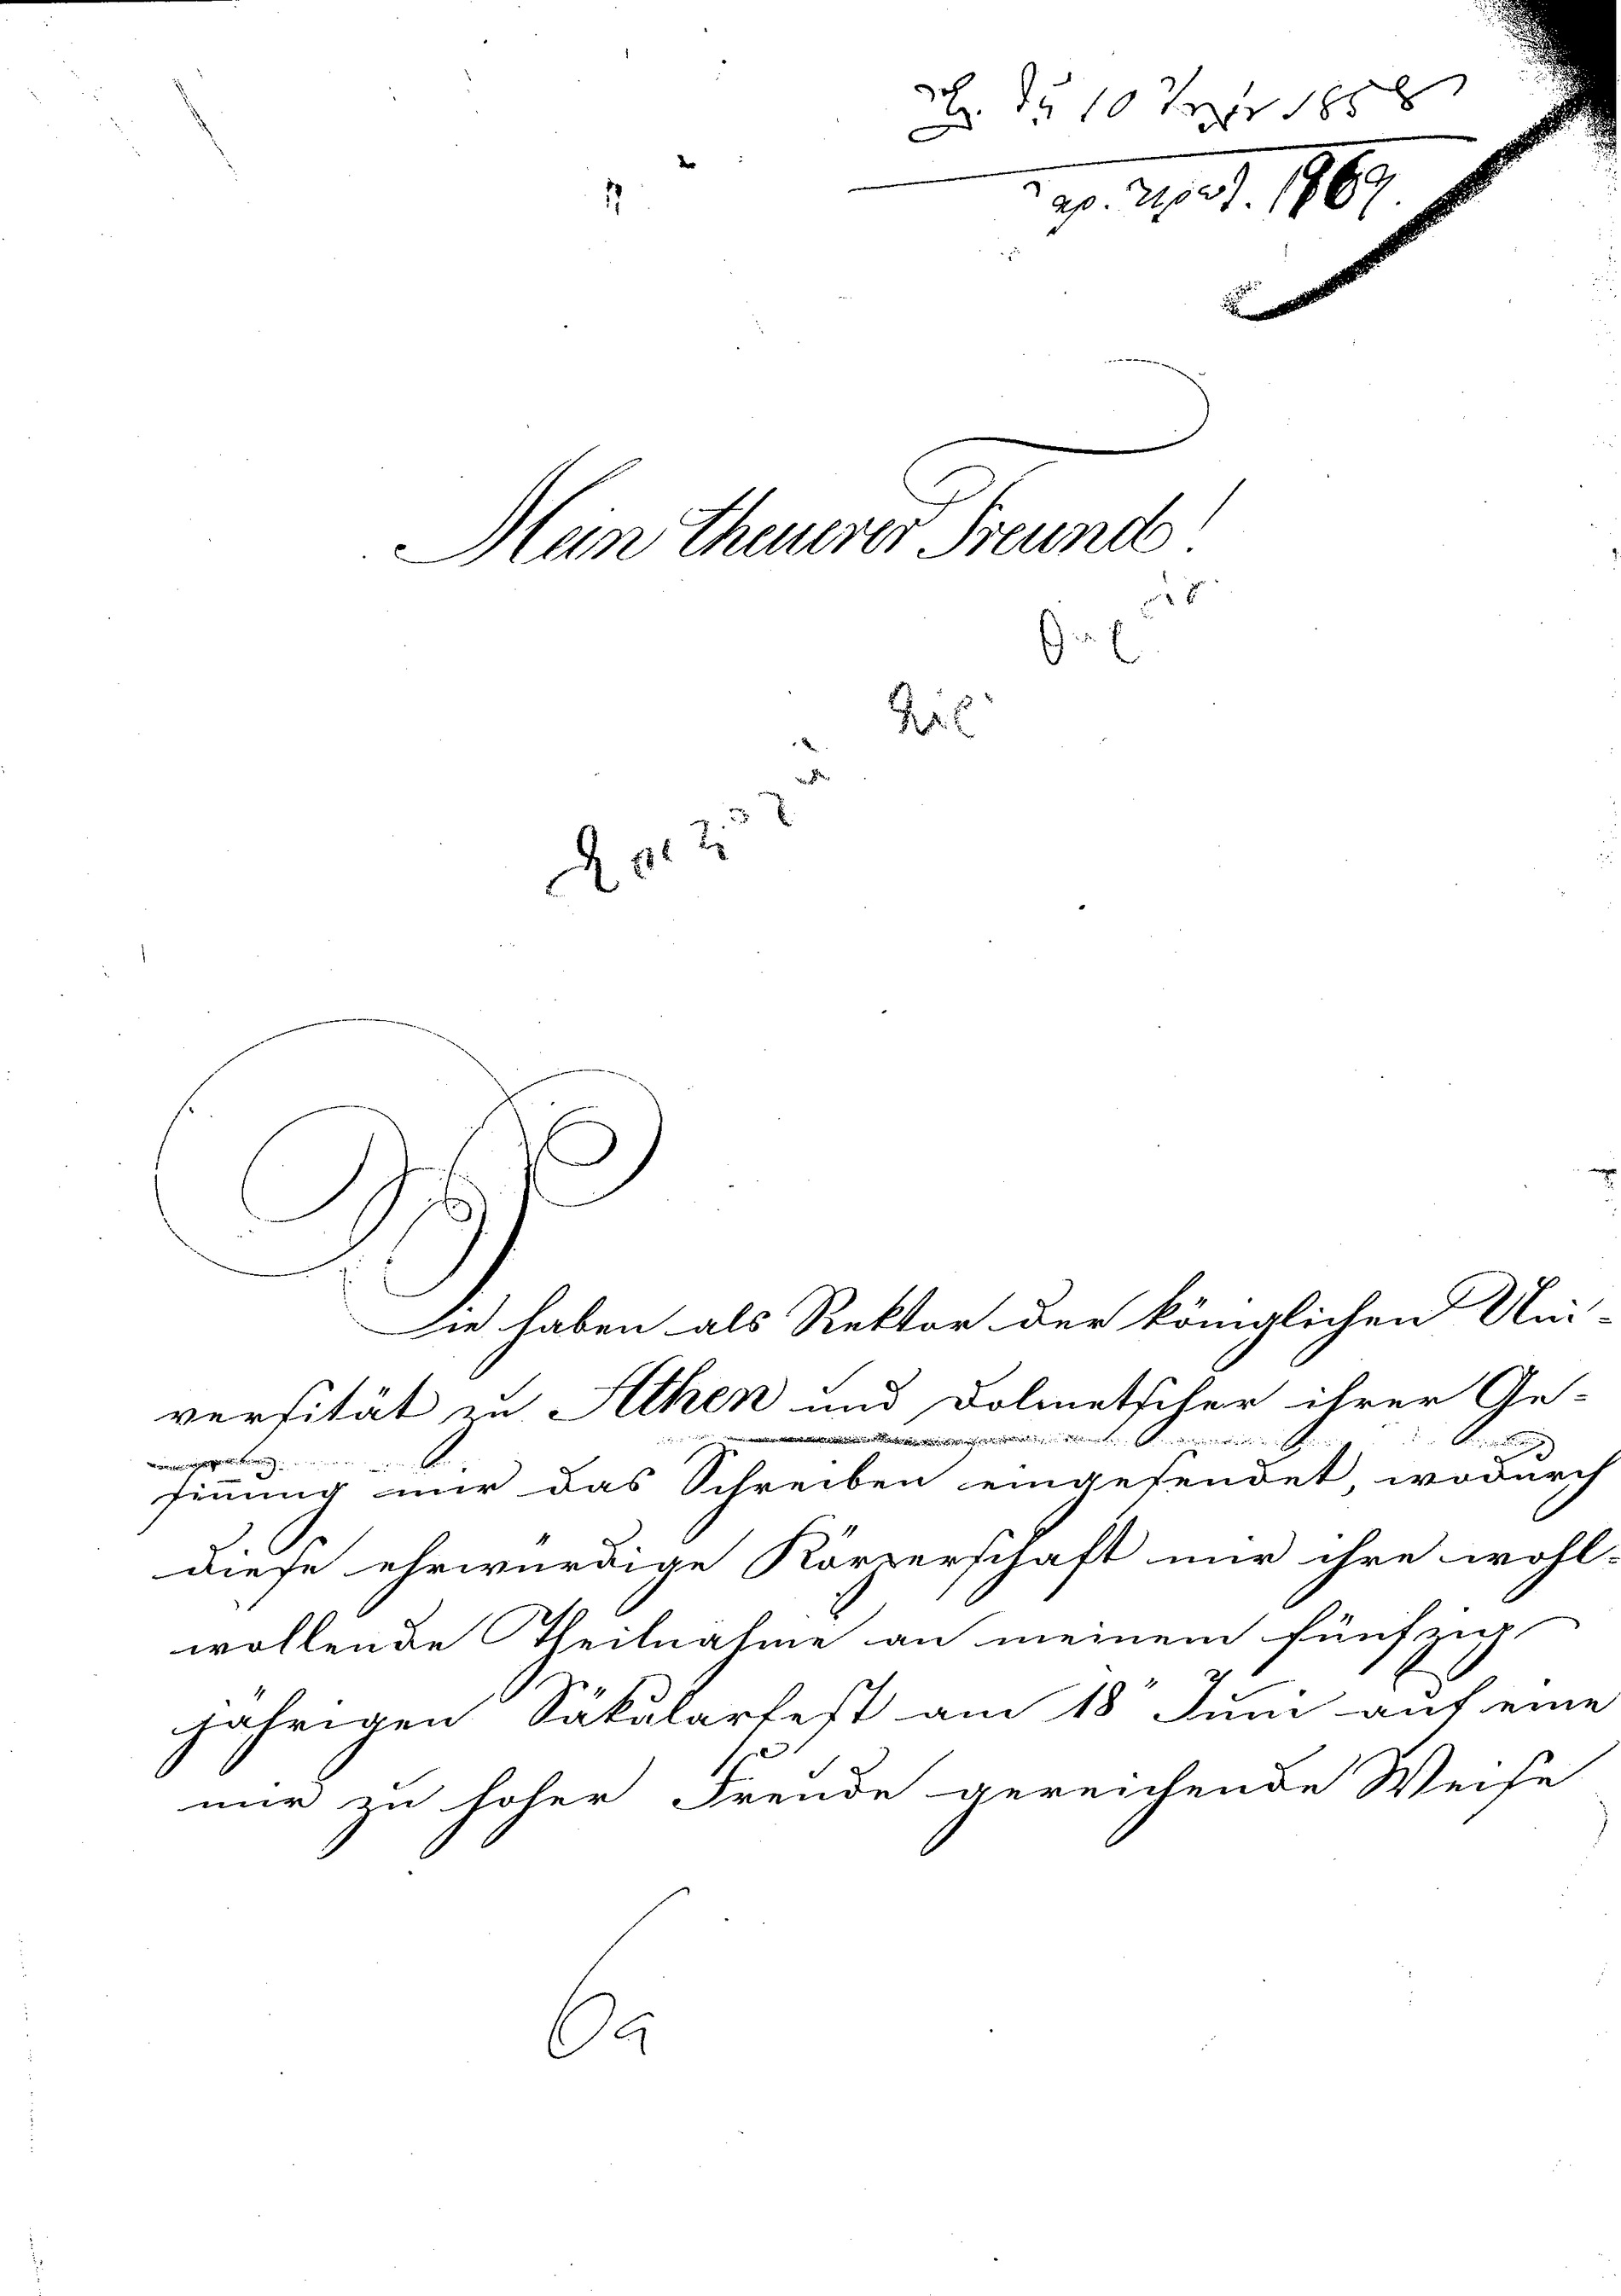 10 1858
1869.
Mein theurer Freund!
Sie haben als Rektor der königlichen Uni-
versität zu Athen und Dolmetscher ihrer Ge-
sin̅ung mir das Schreiben eingesendet, wodurch
diese ehrwürdige Körperschaft mir ihre wohl-
wollende Theilnahme an meinem fünfzig
jährigen Säkularfest am 18" Juni auf eine
mir zu hoher Freude gereichende Weise
6a